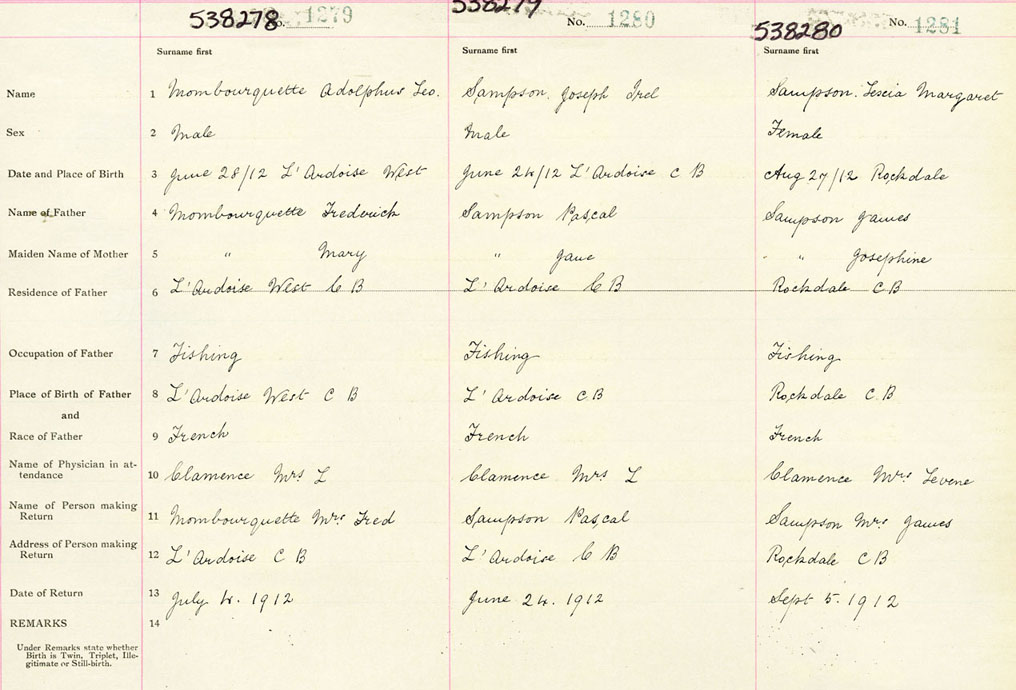 538278 No. 1279 538279 No. 1280 538280 No. 1281
Surname first Surname first Surname first
Name 1 Mombourquette Adolphus Leo. Sampson. Joseph Irel Sampson. Margaret
Sex 2 Male Male Female
Date and Place of Birth 3 June 28/12 L'Ardoise West June 24/12 L'Ardoise C B Aug 27/12 Rockdale
Name of Father 4 Mombourquette Frederick Sampson Pascal Sampson James
Maiden Name of Mother 5 " Mary " Jane " Josephine
Residence of Father 6 L'Ardoise West C B L'Ardoise C B Rockdale C B
Occupation of Father 7 Fishing Fishing Fishing
Place of Birth of Father 8 L'Ardoise West C B L'Ardoise C B Rockdale C B
and
Race of Father 9 French French French
Name of Physician in at-
tendance 10 Clamence Mrs L Clamence Mrs L Clamence Mrs Levene
Name of Person making
Return 11 Mombourquette Mrs Fred Sampson Pascal Sampson Mrs James
Address of Person making
Return 12 L'Ardoise C B L'Ardoise C B Rockdale C B
Date of Return 13 July 4. 1912 June 24. 1912 Sept 5. 1912
REMARKS 14
Under Remarks state whether
Birth is Twin, Triplet, Ille-
gitimate or Still-birth.